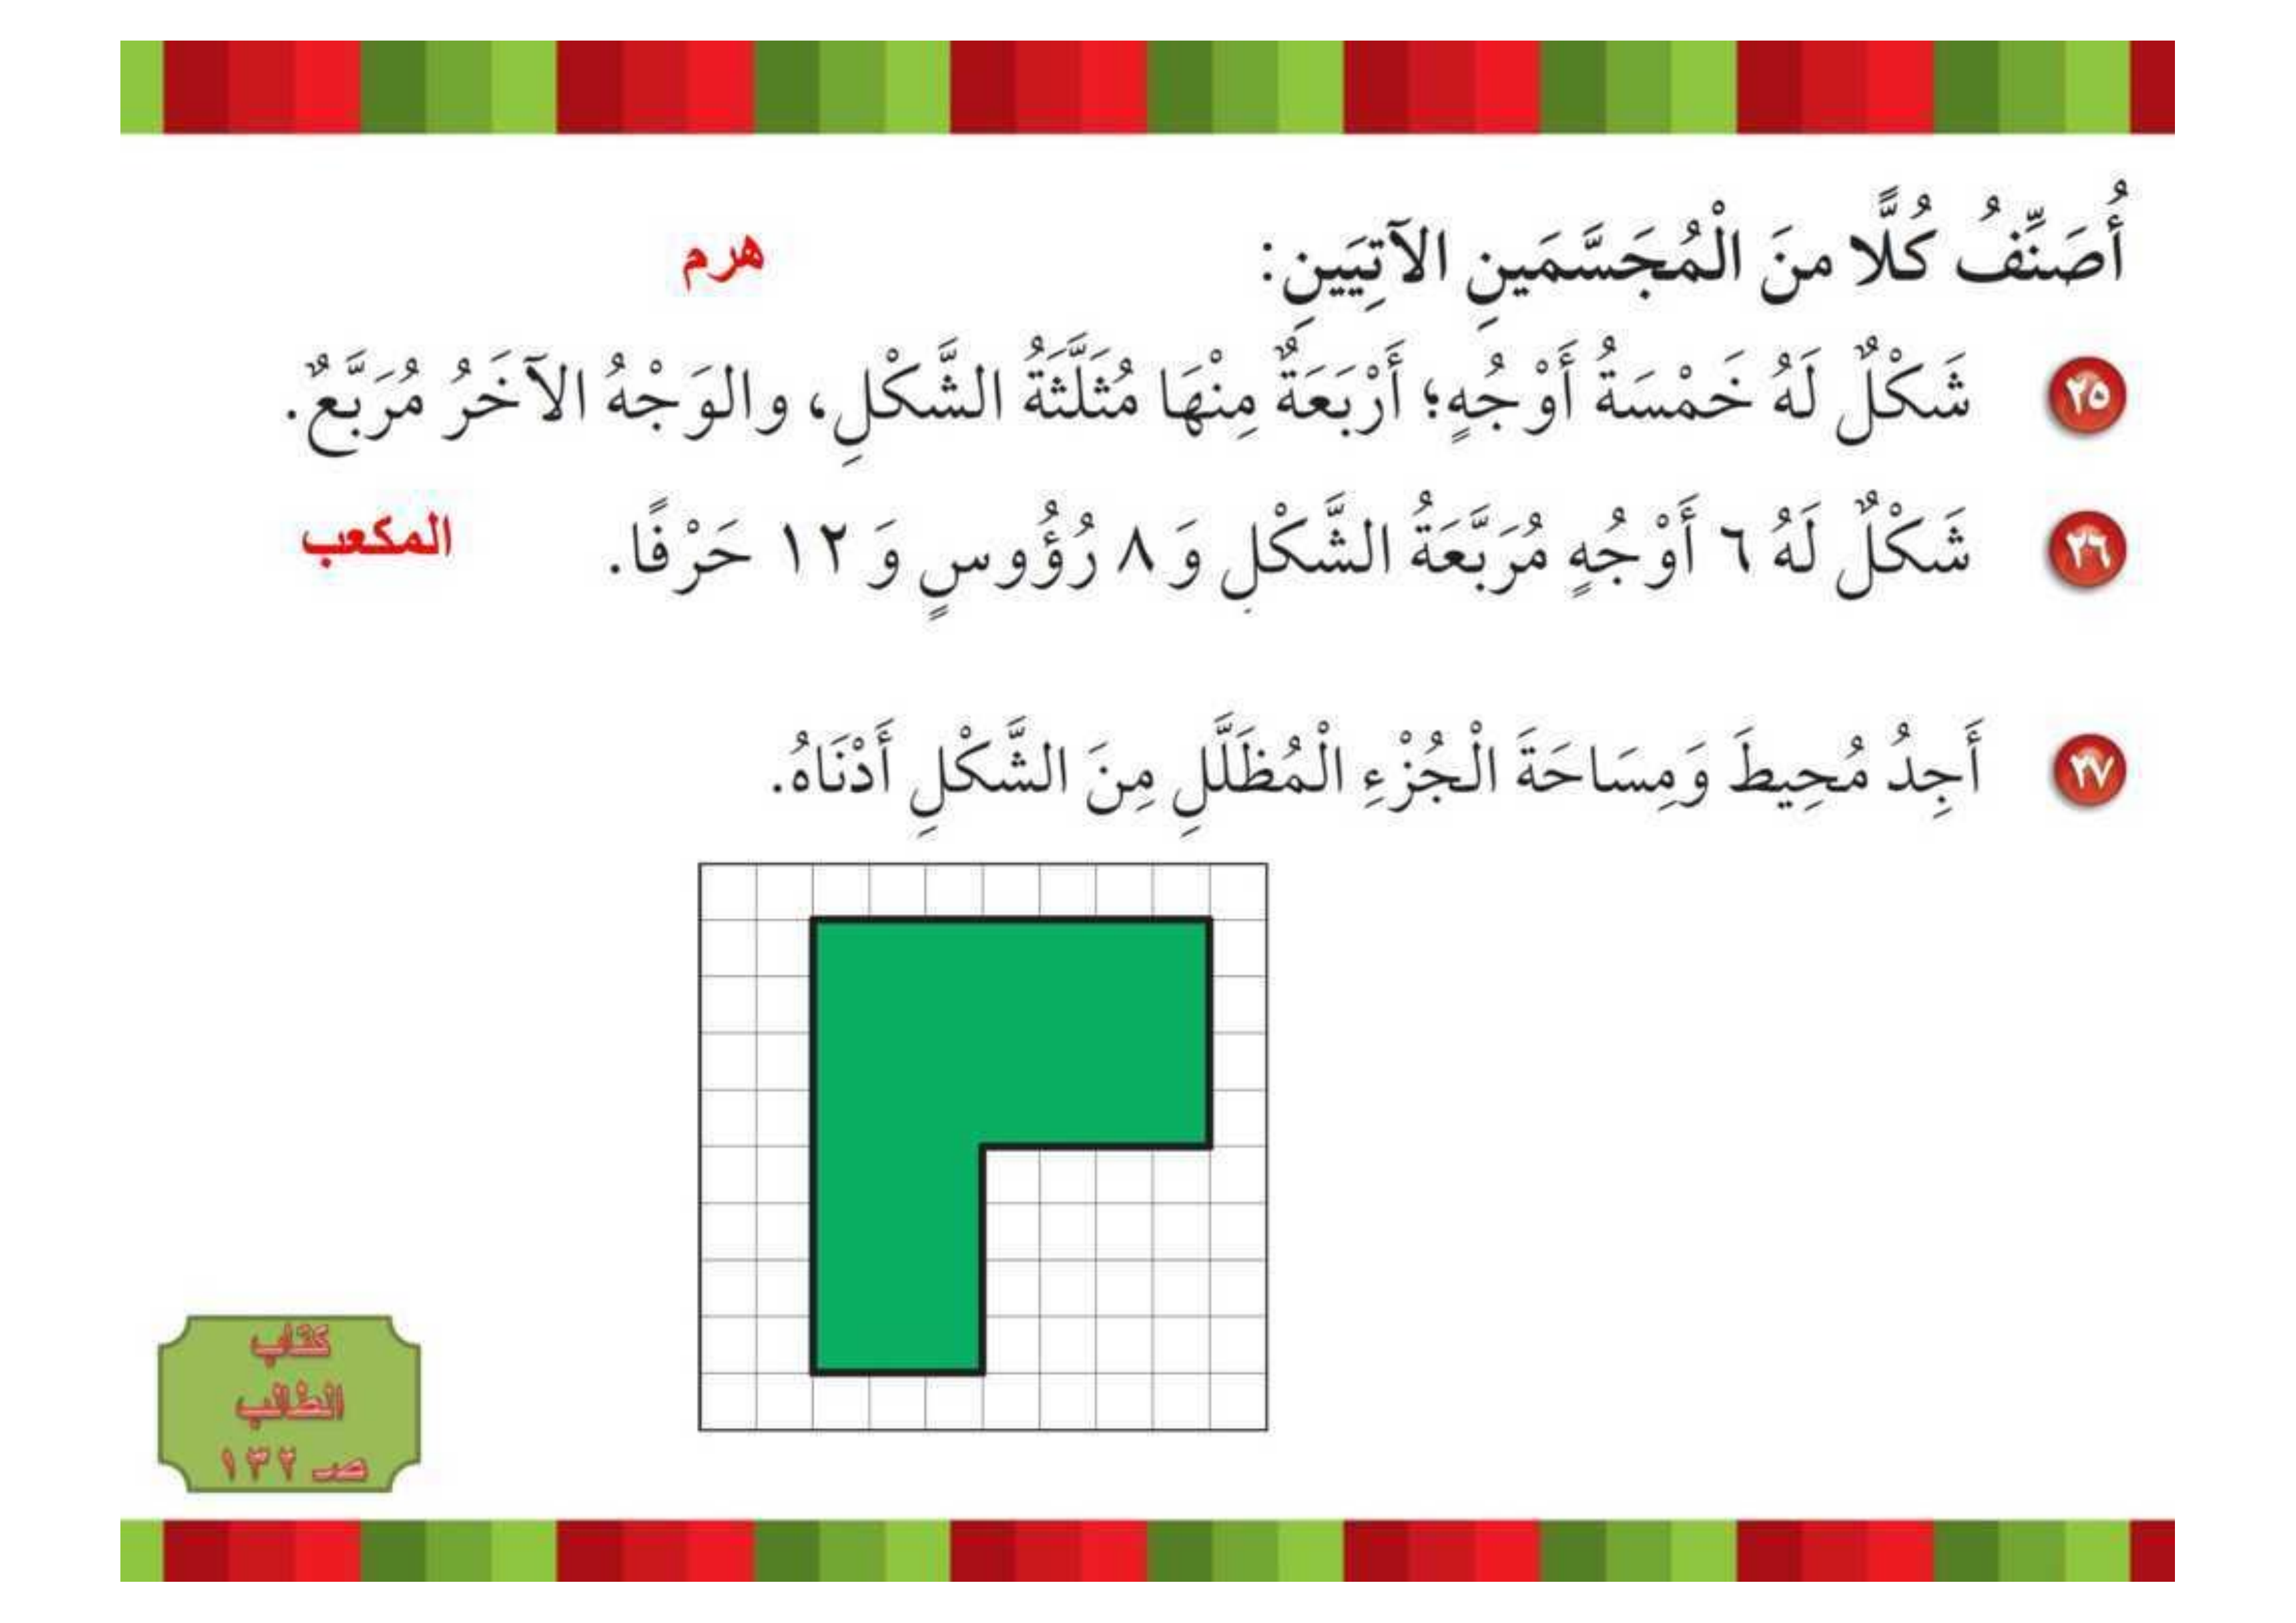 أُصَنِّفُ كُلًّا منَ الْمُجَسَّمَينِ الآتِيَينِ: هرم
٢٥ شَكْلٌ لَهُ خَمْسَةُ أَوْجُهٍ؛ أَرْبَعَةٌ مِنْهَا مُثَلَّثَةُ الشَّكْلِ، والوَجْهُ الآخَرُ مُرَبَّعٌ.
٢٦ شَكْلٌ لَهُ ٦ أَوْجُهٍ مُرَبَّعَةُ الشَّكْلِ وَ ٨ رُؤُوسٍ وَ ١٢ حَرْفًا. المكعب
٢٧ أَجِدُ مُحِيطَ وَمِسَاحَةَ الْجُزْءِ الْمُظَلَّلِ مِنَ الشَّكْلِ أَدْنَاهُ.
كتاب
الطالب
صـ ١٣٢